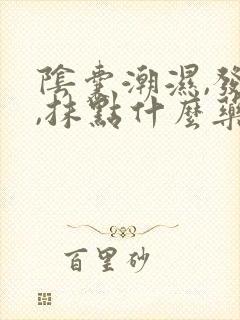 陰囊潮濕,發
,抹點什麼藥
百里砂